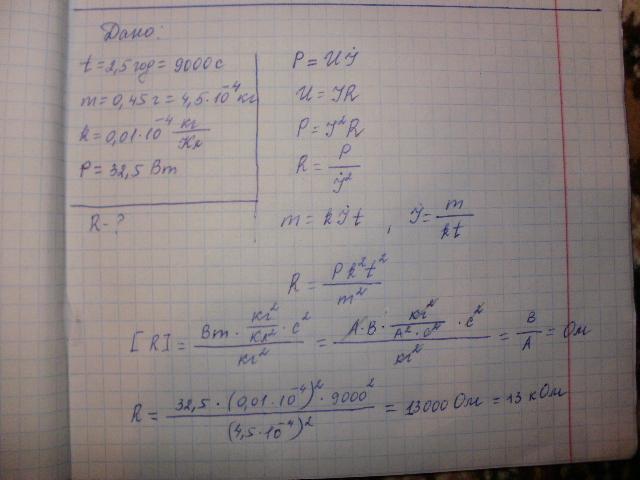 Дано:
t = 2,5 год = 9000 с
m = 0,45 г = 4,5·10⁻⁴ кг
k = 0,01·10⁻⁴ кг/Кл
P = 32,5 Вт
R - ?
P = UI
U = IR
P = I²R
R = P/I²
m = kIt , I = m/kt
R = Pk²t²/m²
[R] = Вт · кг²/Кл² · с² / кг² = А·В · кг²/А²·с² · с² / кг² = В/А = Ом
R = 32,5·(0,01·10⁻⁴)²·9000² / (4,5·10⁻⁴)² = 13000 Ом = 13 кОм